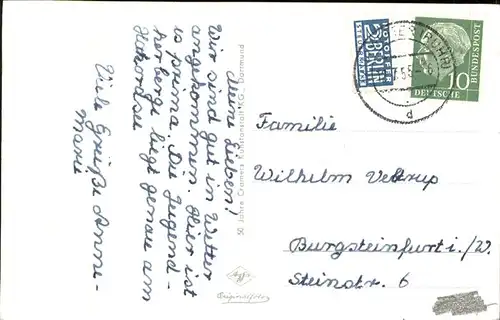 Meine Lieben!
Wir sind gut in Wetter
angekommen. Hier ist
es prima. Die Jugend-
herberge liegt genau am
Harkortsee
Viele Grüße Anne-
Marie
50 Jahre Cramers Kunstanstalt KG., Dortmund
Agfa
Originalfoto
NOTOPFER
2 BERLIN
STEUERMARKE
(RUHR)
d
10
DEUTSCHE
BUNDESPOST
Familie
Wilhelm Veltrup
Burgsteinfurt i./W.
Steinstr. 6